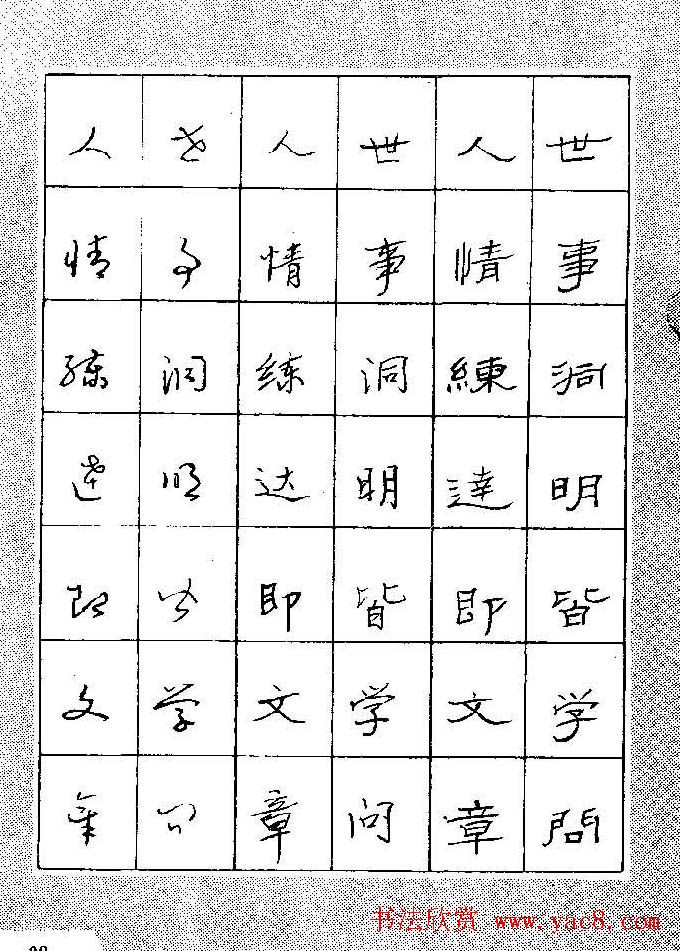 世事洞明皆学問
人情練達即文章
世事洞明皆学问
人情练达即文章
世事洞明皆学问
人情练達即文章
书法欣赏 www.yac8.com